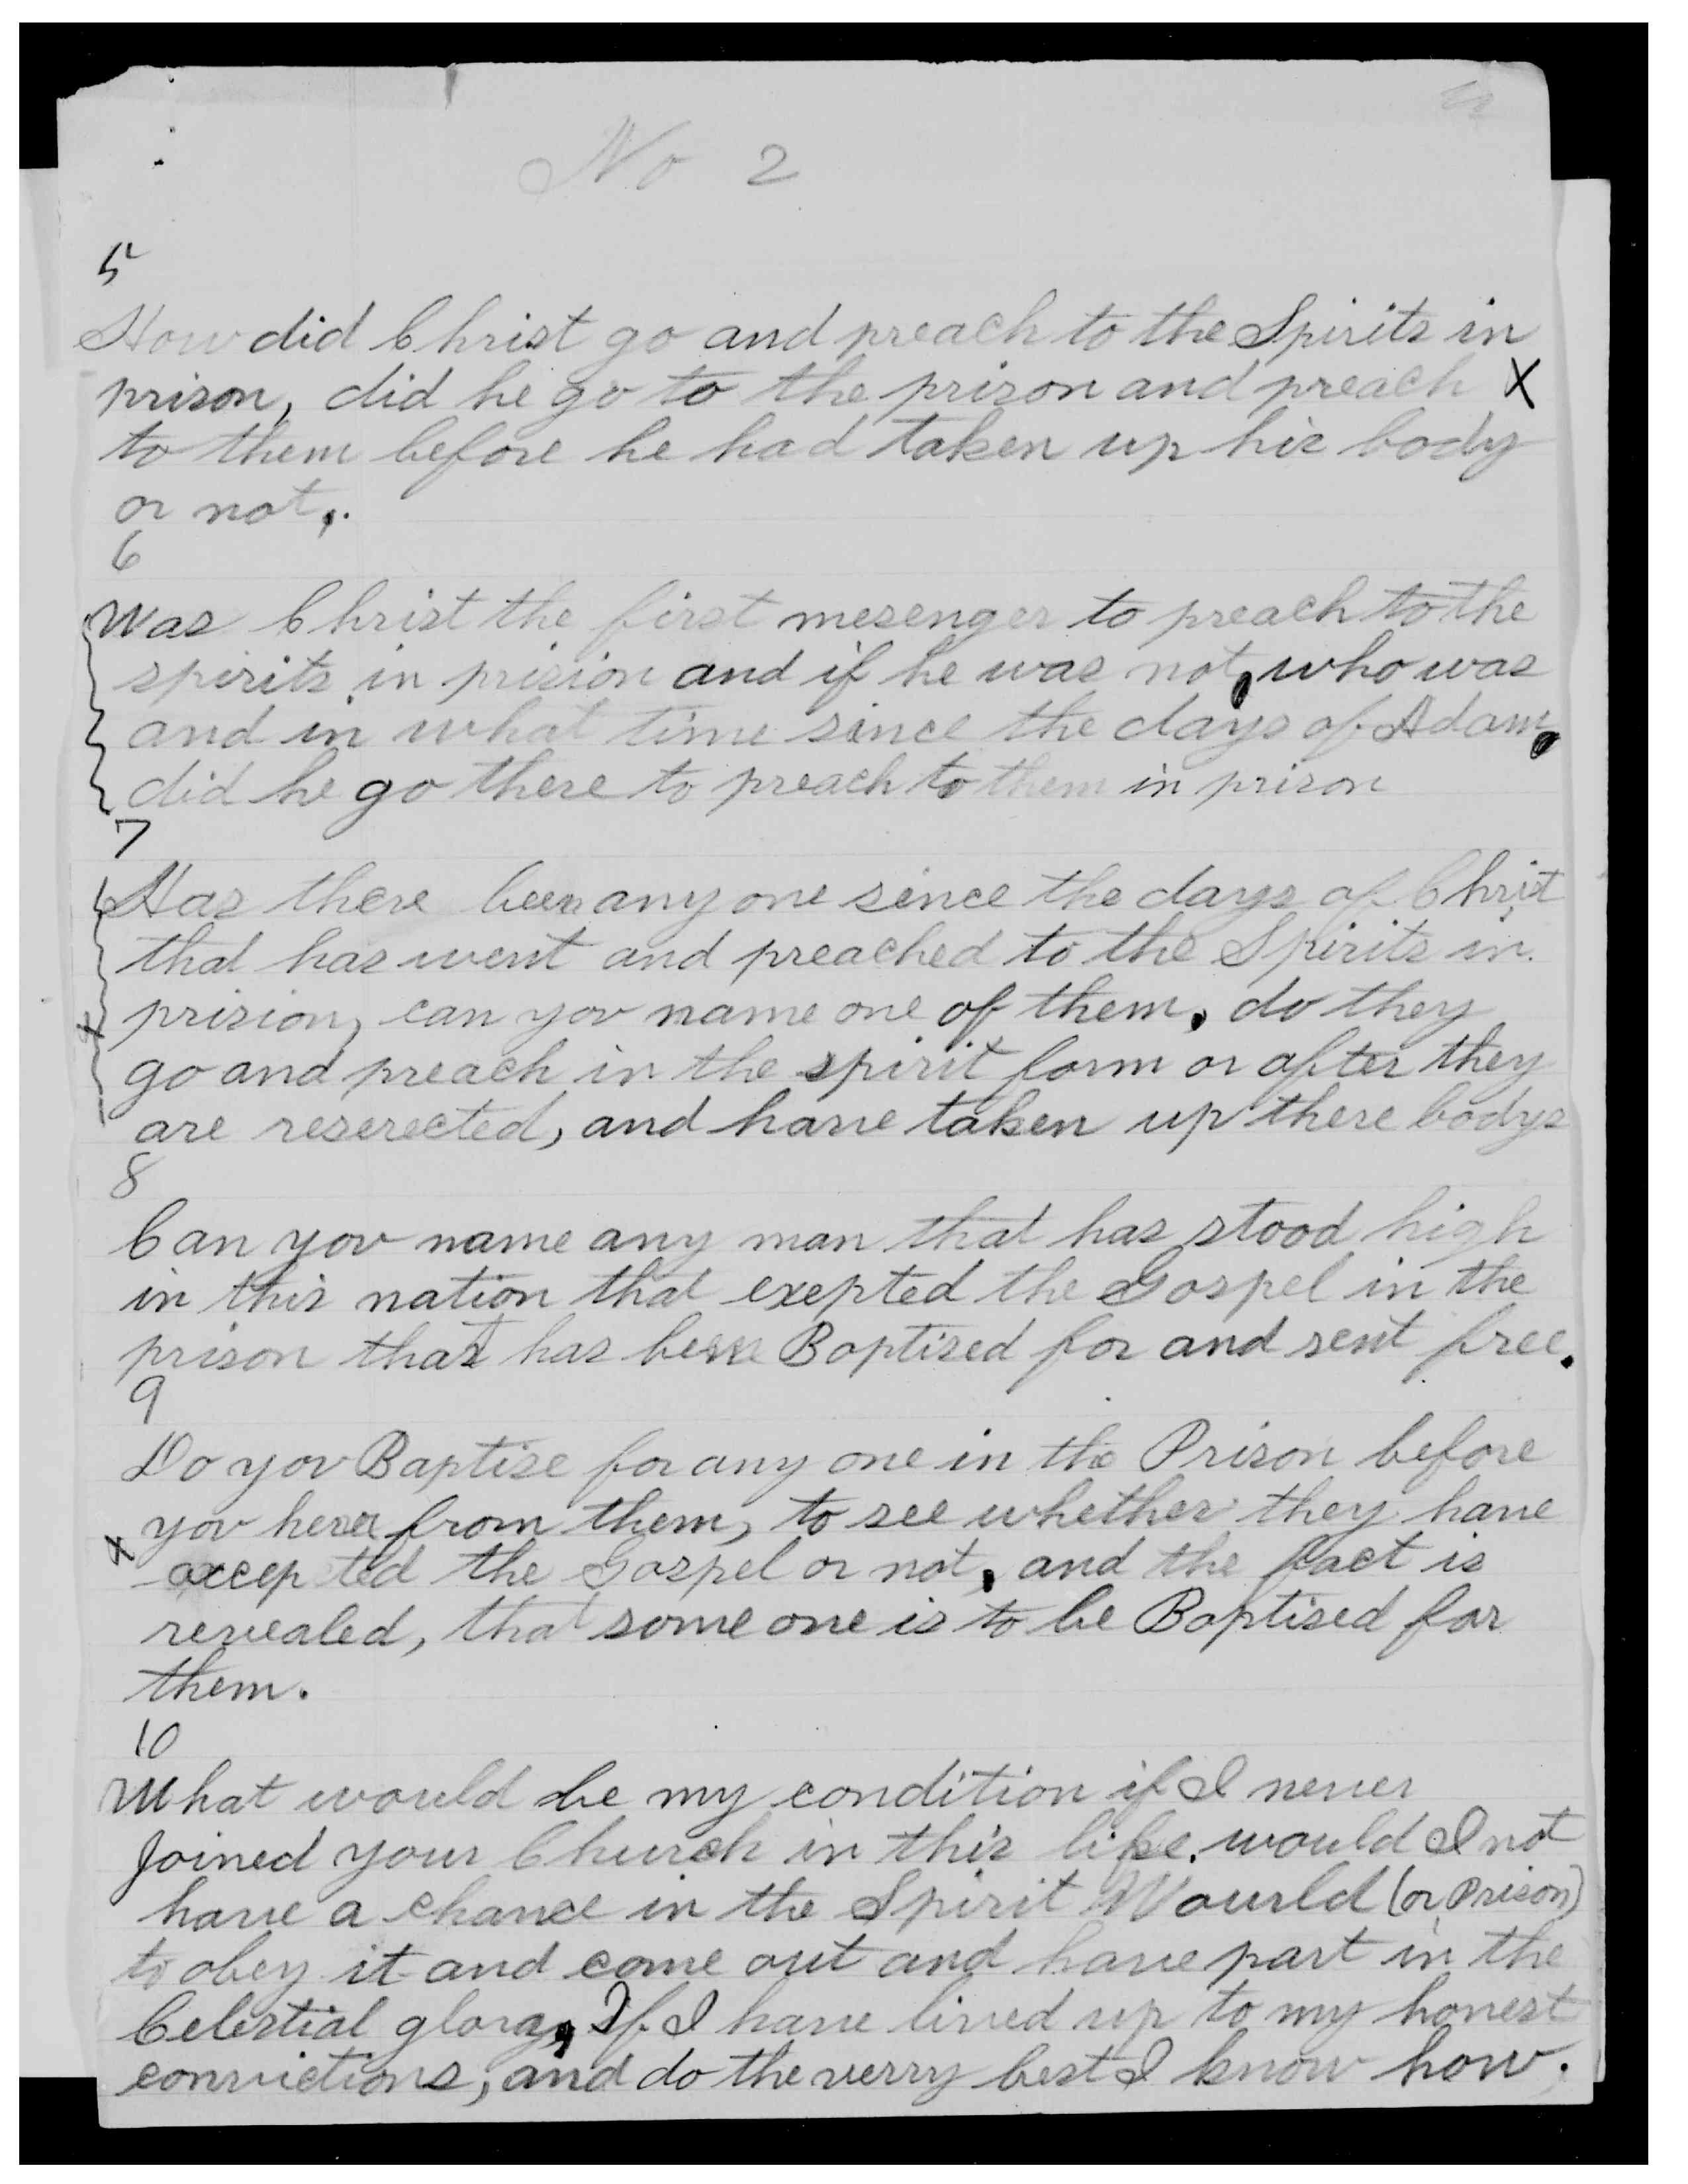 No 2
5
How did Christ go and preach to the Spirits in
prison, did he go to the prison and preach X
to them before he had taken up his body
or not,.
6
Was Christ the first mesenger to preach to the
spirits in prision and if he was not, who was
and in what time since the days of Adam,
did he go there to preach to them in prison
7
Has there been any one since the days of Christ
that has went and preached to the Spirits in.
prision, can yov name one of them, do they
go and preach in the spirit form or after they
are reserected, and have taken up there bodys
8
Can yov name any man that has stood high
in this nation that exepted the Gospel in the
prison that has been Baptised for and sent free.
9
Do yov Baptise for any one in the Prison before
yov hear from them, to see whether they have
x accepted the Gospel or not, and the fact is
revealed, that some one is to be Baptised for
them.
10
What would be my condition if I never
Joined your Church in this life. would I not
have a chance in the Spirit Wourld (or Prison)
to obey it and come out and have part in the
Celestial glory, If I have lived up to my honest
convictions, and do the verry best I know how.